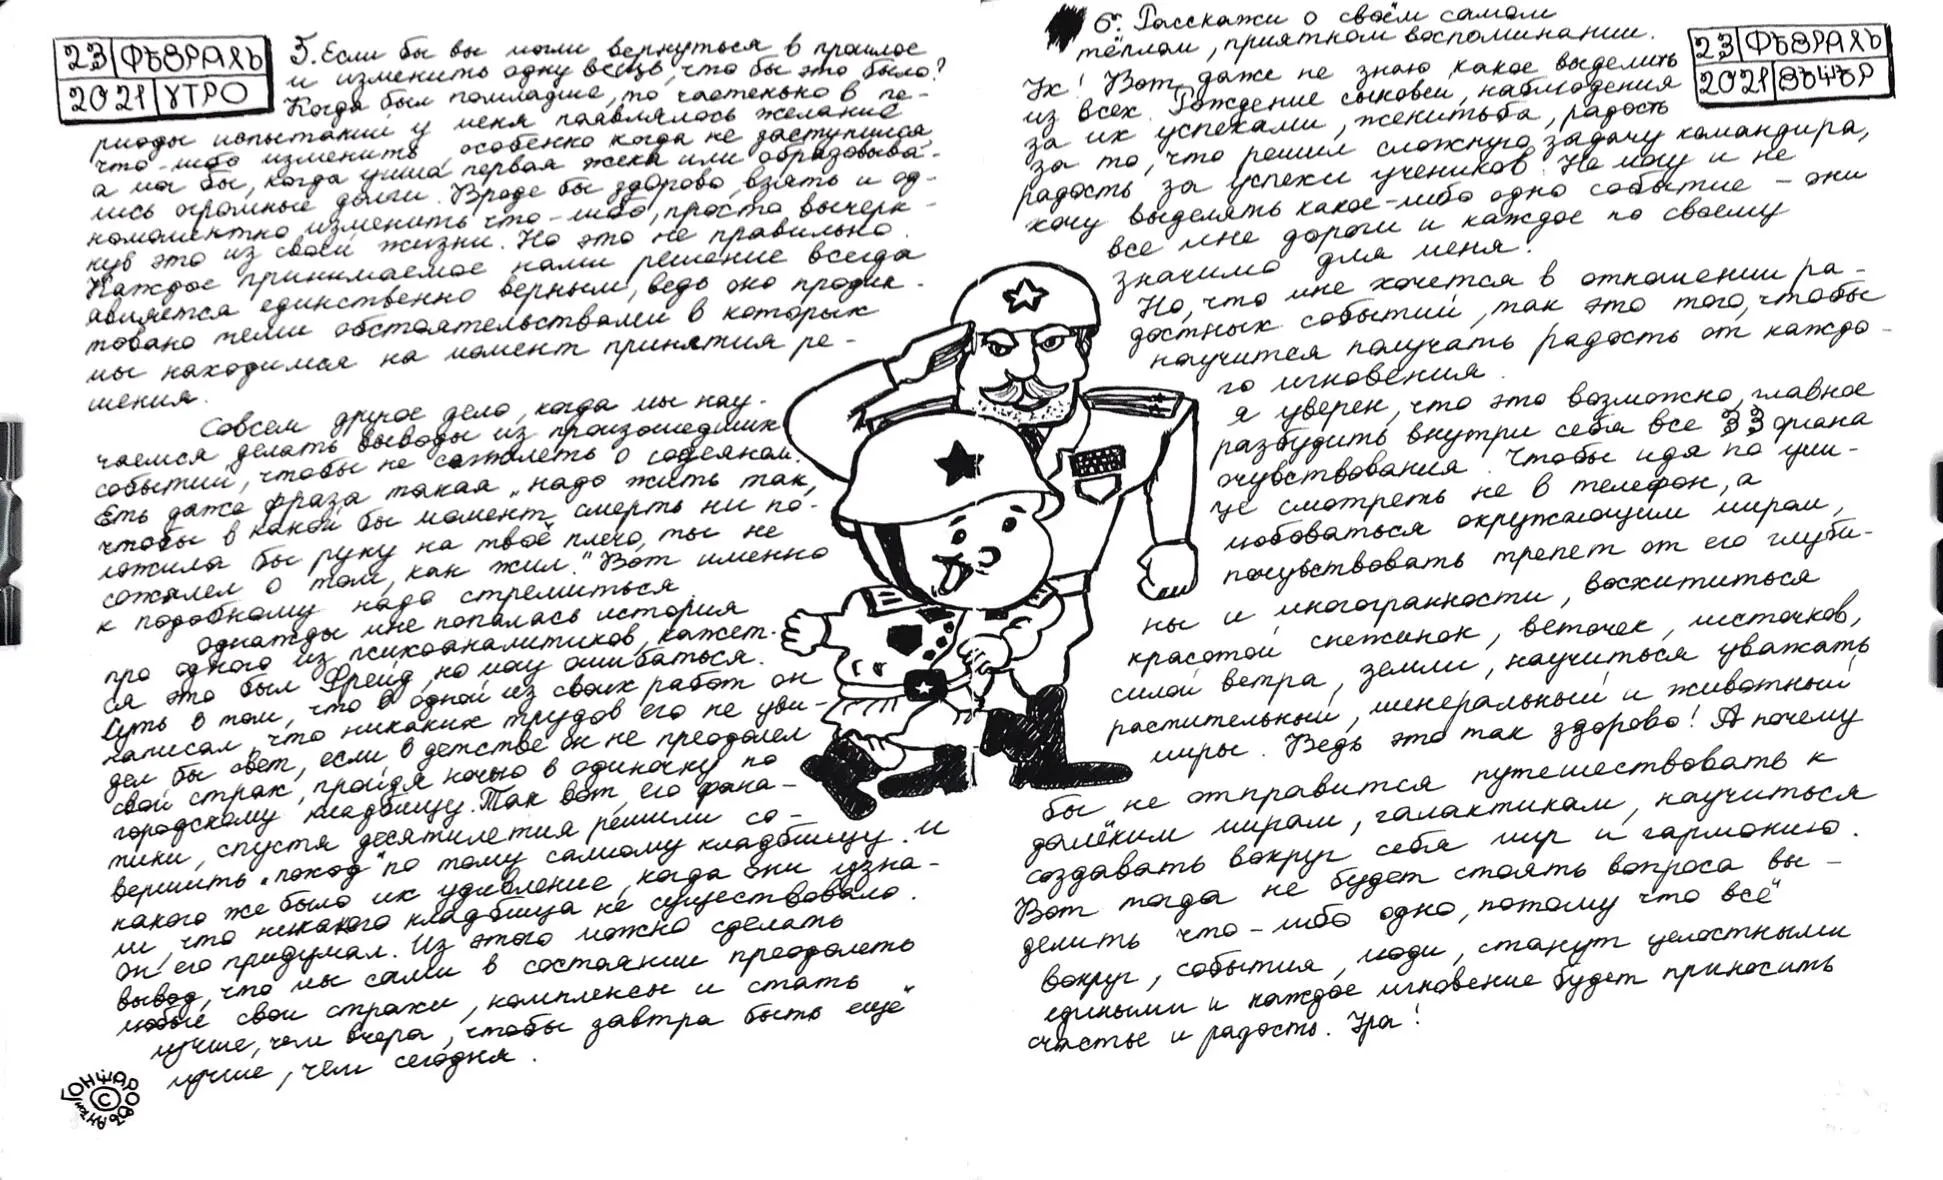 23 ФЪВРАЛЬ
2021 УТРО
5. Если бы вы могли вернуться в прошлое
и изменить одну вещь, что бы это было?
Когда был помладше, то частенько в пе-
риоды испытаний у меня появлялось желание
что-либо изменить, особенно когда не заступился,
а мог бы, когда ушла первая жена или образовыва-
лись огромные долги. Вроде бы здорово взять и од-
номоментно изменить что-либо, просто вычерк-
нув это из своей жизни. Но это не правильно.
Каждое принимаемое нами решение всегда
является единственно верным, ведь оно продик-
товано теми обстоятельствами в которых
мы находимся на момент принятия ре-
шения.
Совсем другое дело, когда мы нау-
чаемся делать выводы из произошедших
событий, чтобы не сожалеть о содеяном.
Еть даже фраза такая „надо жить так,
чтобы в какой бы момент смерть ни по-
ложила бы руку на твоё плечо, ты не
сожалел о том, как жил." Вот именно
к подобному надо стремиться
Однажды мне попалась история
про одного из психоаналитиков, кажет-
ся это был Фрейд, но могу ошибаться.
Суть в том, что в одной из своих работ он
написал, что никаких трудов его не уви-
дел бы свет, если в детстве он не преодолел
свой страх, пройдя ночью в одиночку по
городскому кладбищу. Так вот, его фана-
тики, спустя десятилетия решили со-
вершить „поход" по тому самому кладбищу. И
каково же было их удивление, когда они узна-
ли, что никакого кладбища не существовало.
Он его придумал. Из этого можно сделать
вывод, что мы сами в состоянии преодолеть
любые свои страхи, комплексы и стать
лучше, чем вчера, чтобы завтра быть ещё
лучше, чем сегодня.
©
6. Расскажи о своём самом
тёплом, приятном воспоминании.
23 ФЪВРАЛЬ
2021 ВЪЧЪР
Ух! Вот даже не знаю какое выделить
из всех. Рождение сыновей, наблюдения
за их успехами, женитьба, радость
за то, что решил сложную задачу командира,
радость за успехи учеников. Не могу и не
хочу выделять какое-либо одно событие - они
все мне дороги и каждое по своему
значимо для меня.
Но, что мне хочется в отношении ра-
достных событий, так это того, чтобы
научится получать радость от каждо-
го мгновения.
Я уверен, что это возможно, главное
разбудить внутри себя все 33 органа
очувствования. Чтобы идя по ули-
це смотреть не в телефон, а
любоваться окружающим миром,
почувствовать трепет от его глуби-
ны и многогранности, восхититься
красотой снежинок, веточек, листочков,
силой ветра, земли, научиться уважать
растительный, минеральный и животный
миры. Ведь это так здорово! А почему
бы не отправится путешествовать к
далёким мирам, галактикам, научиться
создавать вокруг себя мир и гармонию.
Вот тогда не будет стоять вопроса вы-
делить что-либо одно, потому что всё
вокруг, события, люди, станут целостными
едиными и каждое мгновение будет приносить
счастье и радость. Ура!